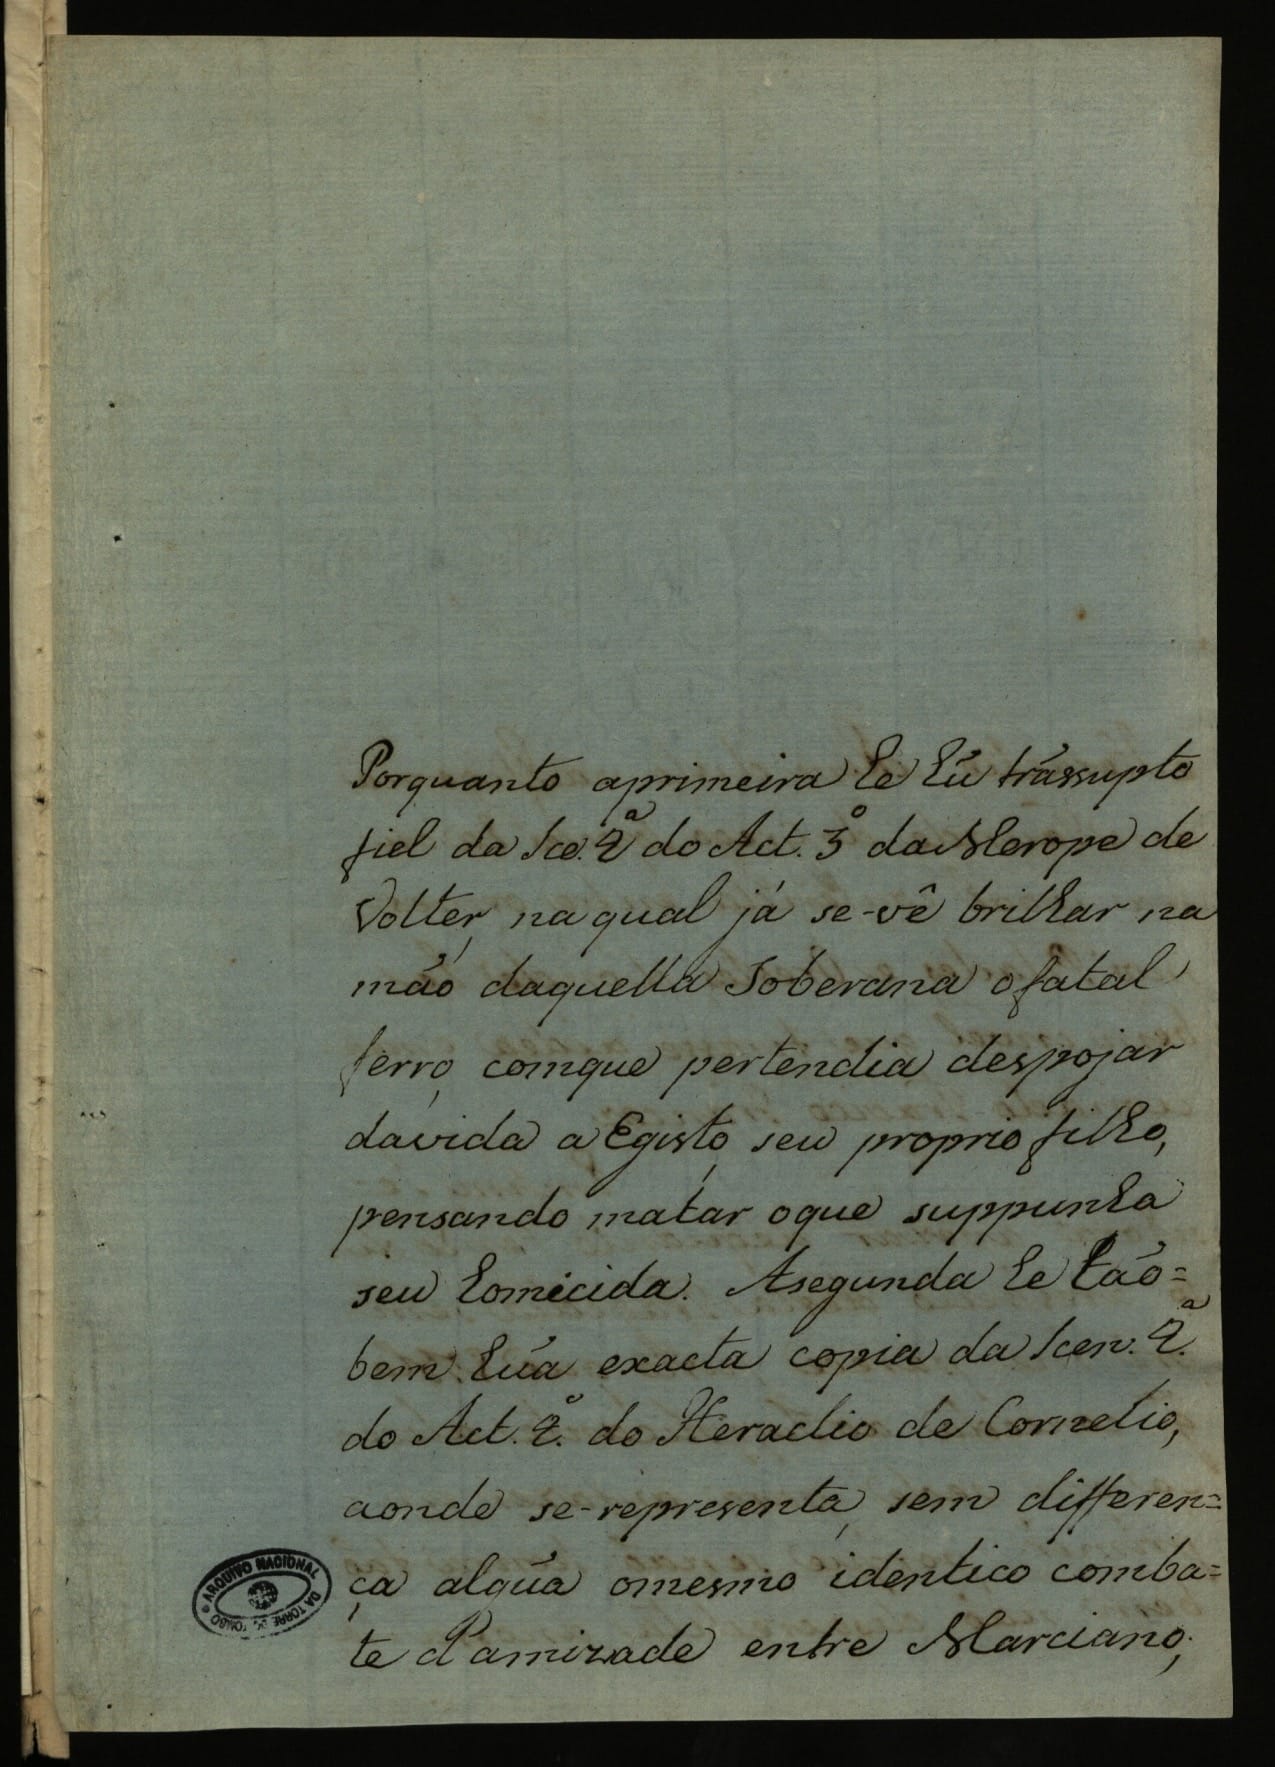 Porquanto aprimeira he hũ trãssupto
fiel da Sce. 2.ª do Act. 3.º da Merope de
Volter, na qual já se-vê brilhar na
mão daquella Soberana o fatal
ferro, comque pertendia despojar
davida a Egisto, seu proprio filho,
pensando matar oque suppunha
seu homicida. Asegunda he tão=
bem hũa exacta copia da Scen. 2.ª
do Act. 2.º do Heraclio de Cornelio,
aonde se-representa, sem differen=
ça algũa omesmo identico comba=
te d'amizade entre Marciano,
ARQUIVO NACIONAL DA TORRE DO TOMBO